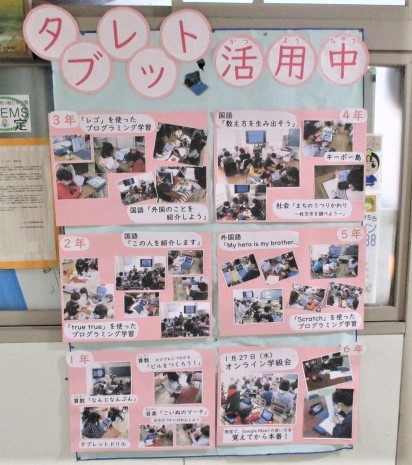 タブレット活用中
かつ よう ちゅう
3年
「レゴ」を使った
プログラミング学習
国語「外国のことを
紹介しよう」
4年
国語
「数え方を生み出そう」
キーボー島
社会「まちのうつりかわり
2年
国語
「この人を紹介します」
「true true」を使った
プログラミング学習
5年
外国語
「My hero is my brother.」
「Scratch」を使った
プログラミング学習
1年
算数
「ビルをつくろう！」
算数「なんじなんぷん」
音楽「こいぬのマーチ」
タブレットドリル
6年
1月27日（水）
オンライン学級会
教室で、Google Meetの使い方を
覚えてから本番！
EMS